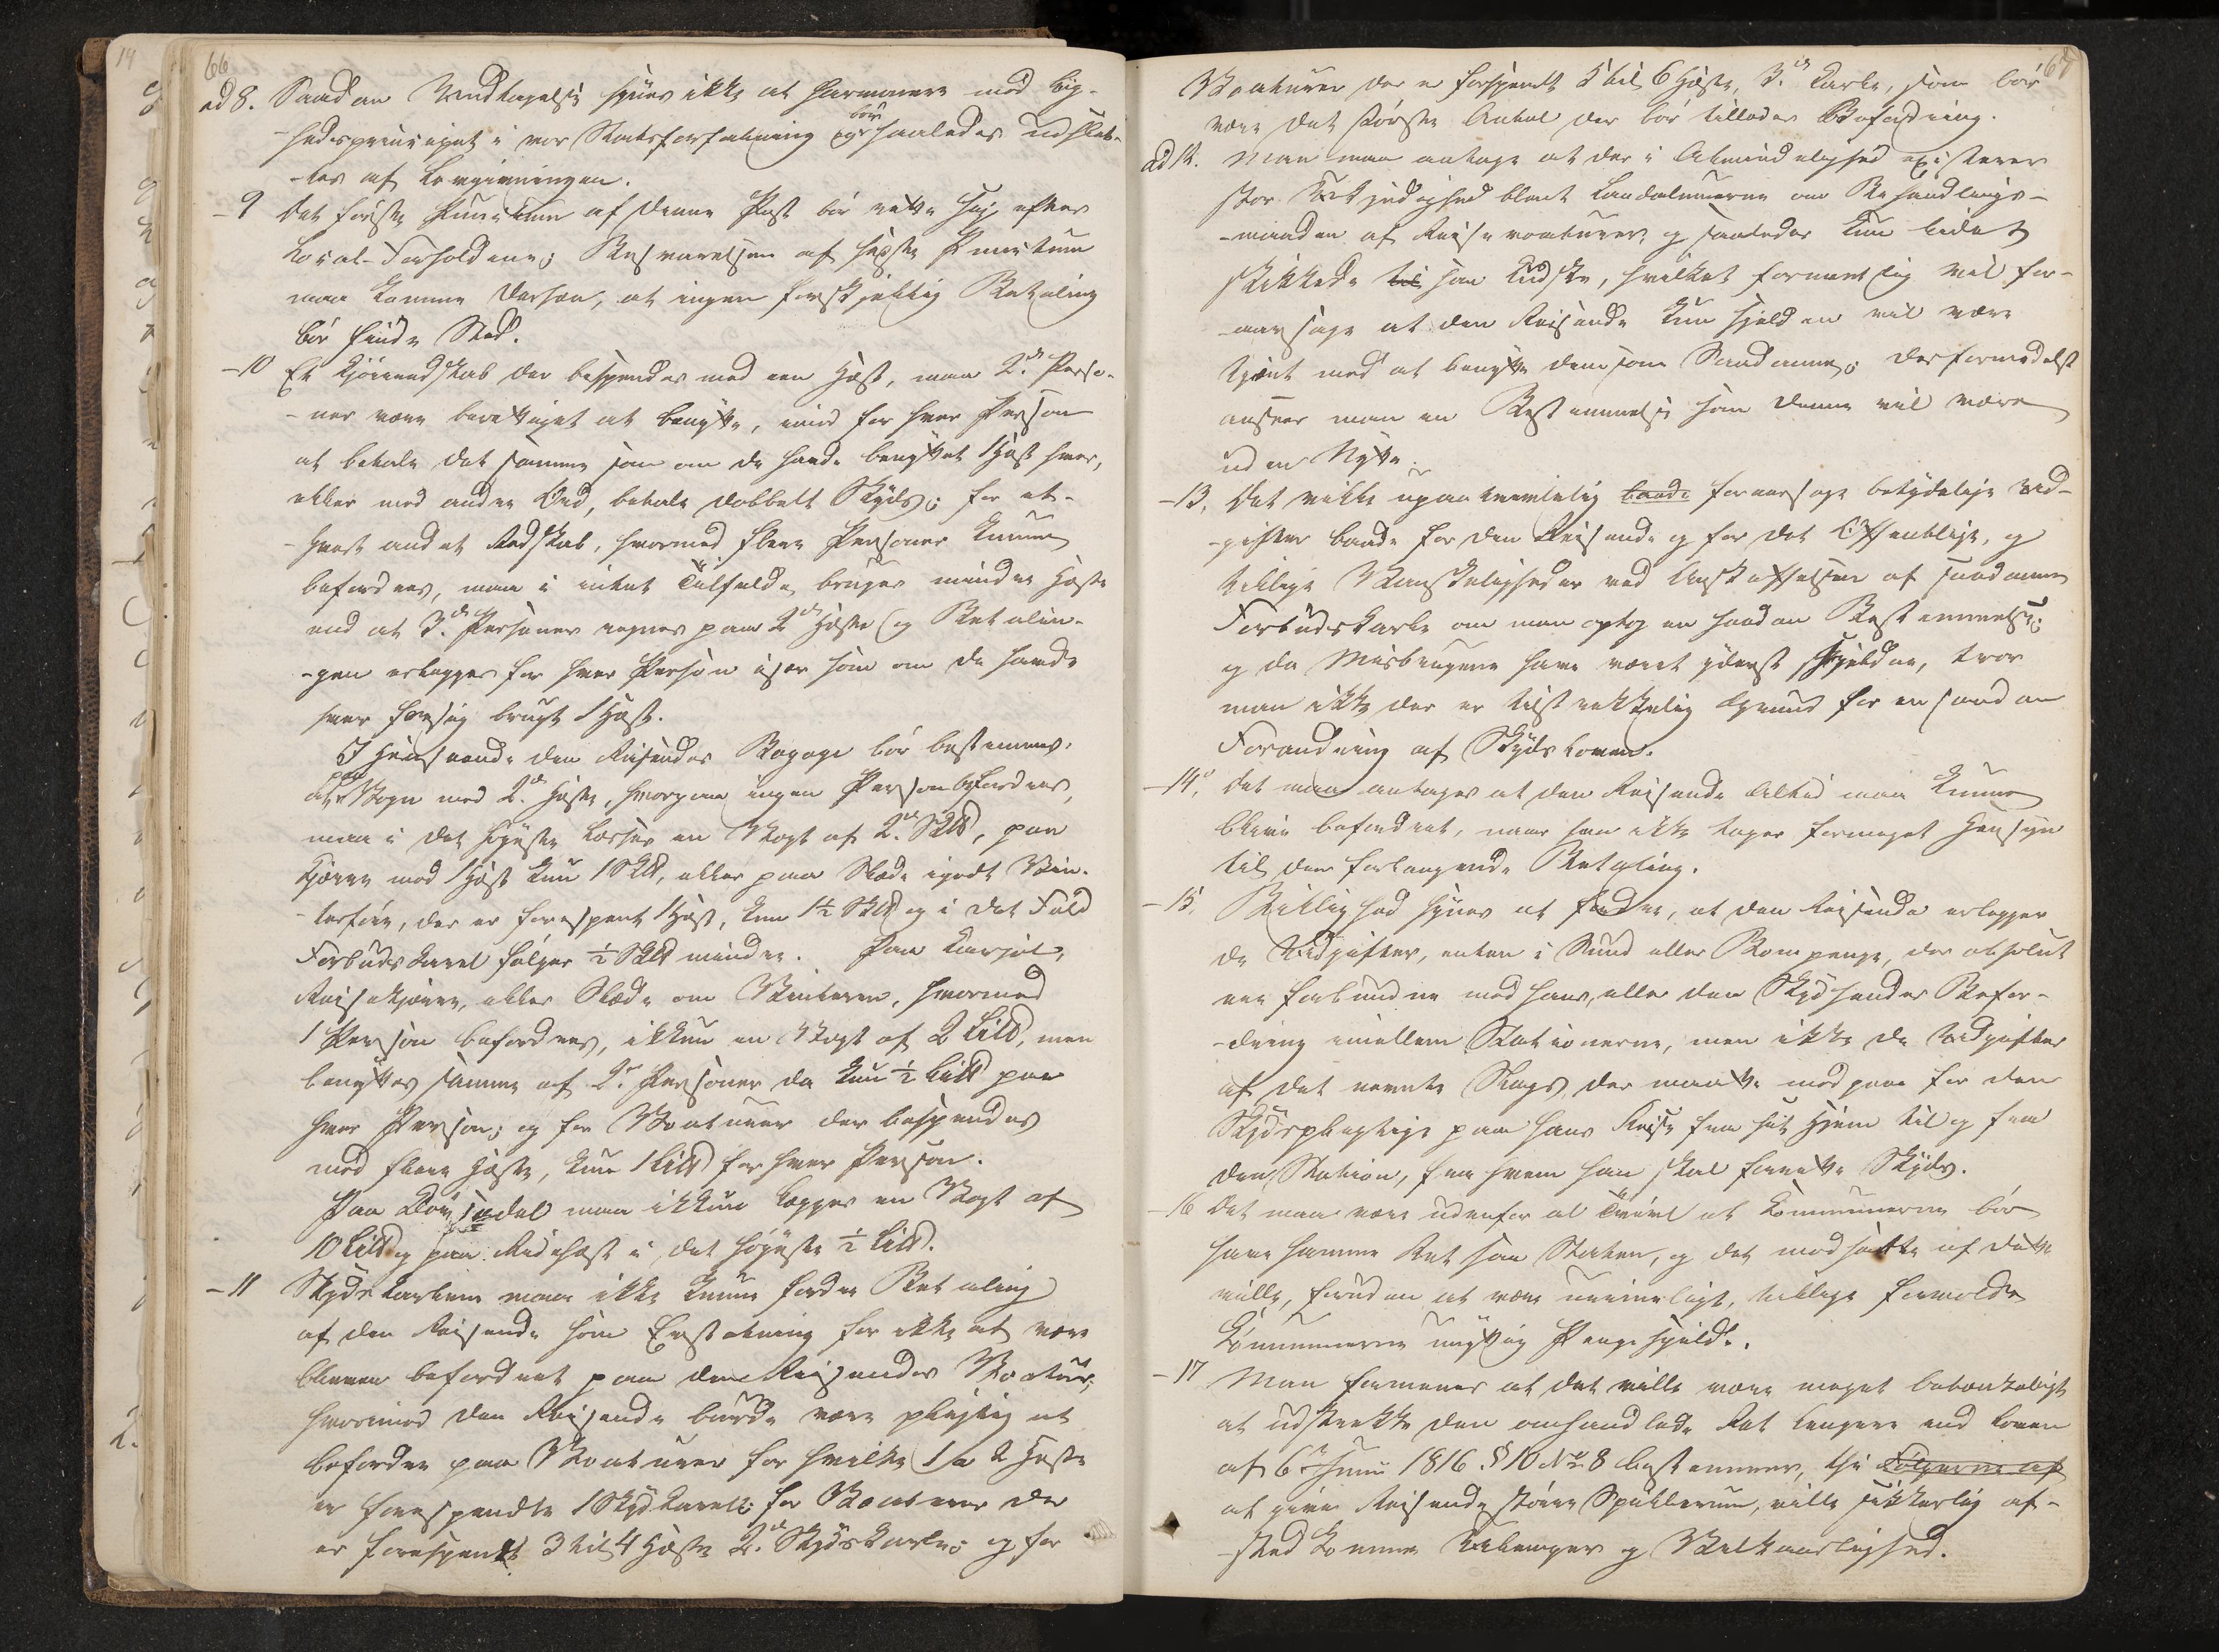 66
ad 8. Saadan Undtagelse synes ikke at harmonere med Lig-
hedsprincipet i vor Statsforfatning og bör saaledes udslet-
tes af Lovgivningen.
- 9 Det förste Punctum af denne Post bör rette sig efter
Local-Forholdene; Besvarelsen af sidste Punctum
maa komme derhen, at ingen forskjellig Betaling
bör finde Sted.
- 10 Et Kjöreredskab der bespendes med een Hest, maa 2de Perso-
ner være berettiget at benytte, imod for hver Person
at betale det samme som om de havde benyttet 1 Hest hver,
eller med andre Ord, betale dobbelt Skyds; for et-
hvert andet Redskab, hvormed flere Personer kunne
befordres, maa i intet Tilfælde bruges mindre Heste
end at 3de Personer regnes paa 2de Heste og Betalin-
gen erlægges for hver Person især som om de havde
hver for sig brugt 1 Hest.
I Henseende den Reisendes Bagage bör bestemmes,
at paa Vogn med 2de Heste, hvorpaa ingen Person befordres,
maa i det höieste læsses en Vægt af 2de Sk℔, paa
Kjærre med 1 Hest kun 1 Sk℔, eller paa Slæde i godt Vin-
terföre, der er forespent 1 Hest, kun 1½ Sk℔ og i det Fald
Forbudskarl fölger ½ Sk℔ mindre. Paa Karjol,
Reisekjærre, eller Slæde om Vinteren, hvormed
1 Person befordres, ikkun en Vægt af 2 L℔, men
benyttes samme af 2de Personer da kun ½ L℔ paa
hver Person; og for Vocturer der bespendes
med flere Heste, kun 1 L℔ for hver Person.
Paa Klövsadel maa ikkun lægges en Vægt af
10 L℔ og paa Ridehest i det höieste ½ L℔.
- 11 Skydskarlene maa ikke kunne fordre Betaling
af den Reisende som Erstatning for ikke at være
bleven befordret paa den Reisendes Voctur,
hvorimod den Reisende burde være pligtig at
befordre paa Vocturer for hvilke 1 a 2 Heste
er forespendte 1 Skydskarl; for Vocturer der
er forespent 3 til 4 Heste 2de Skydskarle; og for
67
Vocturer der er forspendt 5 til 6 Heste, 3de Karle, som bör
være det störste Antal der bör tillades Befordring.
ad 12. Man maa antage at der i Almindelighed existerer
stor Ukyndighed blant Landalmuen om Behandlings-
maaden af Reisevocturer, og saaledes kun lidet
skikkede til som Kudske, hvilket formentlig vil for-
aarsage at den Reisende kun sjelden vil være
tjent med at benytte dem som Saadanne; derformedelst
anseer man en Bestemmelse som denne vil være
uden Nytte.
- 13. Det vilde upaatvivlelig baade foraarsage betydelige Ud-
gifter baade for den Reisende og for det Offentlige, og
tillige Vanskeligheder ved Anskaffelsen af saadanne
Forbudskarle om man optog en saadan Bestemmelse;
og da Misbrugene have været yderst sjeldne, troer
man ikke der er tilstrækkelig Grund for en saadan
Forandring af Skydsloven.
- 14. Det maa antages at den Reisende altid maa kunne
blive befordret, naar han ikke tager formeget Hensyn
til den forlangende Betaling.
- 15. Billighed synes at fordre, at den Reisende erlægger
de Udgifter, enten i Sund eller Bompenge, der absolut
ere forbundne med hans, eller den Skydsendes Befor-
dring imellem Stationerne, men ikke de Udgifter
af det nævnte Slags, der maatte medgaae for den
Skydspligtige paa hans Reise fra sit Hjem til og fra
den Station, fra hvem han skal forrette Skyds.
- 16 Det maa være udenfor al Tvivl at Kommunerne bör
have samme Ret som Staten, og det modsatte af dette
ville, foruden at være urimeligt, tillige forvolde
Kommunerne unyttig Pengespilde.
- 17 Man formener at det ville være meget betænkeligt
at udstrække den omhandlede Ret længere end Loven
af 6te Juni 1816 § 10 No 8 bestemmer, thi Fölgerne af
at give Reisende större Spillerum, ville sikkerlig af-
sted komme Ulemper og Vilkaarlighed.